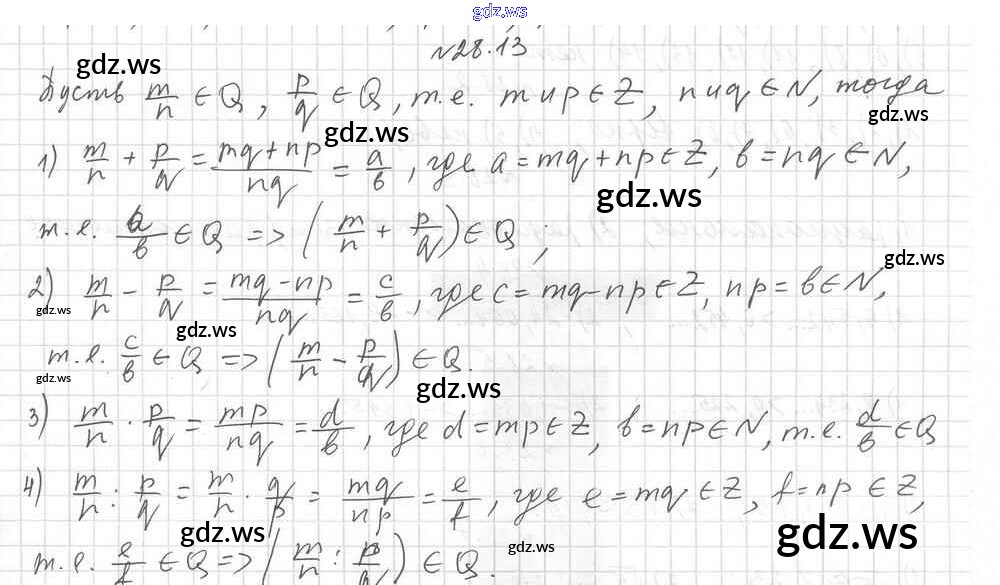 gdz.ws
№28.13
gdz.ws
Пусть m/n ∈ Q, p/q ∈ Q, т.е. m и p ∈ Z, n и q ∈ N, тогда
gdz.ws
gdz.ws
1) m/n + p/q = (mq + np)/nq = a/b, где a = mq + np ∈ Z, b = nq ∈ N,
gdz.ws
т.е. a/b ∈ Q => (m/n + p/q) ∈ Q,
gdz.ws
2) m/n - p/q = (mq - np)/nq = c/b, где c = mq - np ∈ Z, np = b ∈ N,
gdz.ws
gdz.ws
т.е. c/b ∈ Q => (m/n - p/q) ∈ Q.
gdz.ws
gdz.ws
3) m/n · p/q = mp/nq = d/b, где d = mp ∈ Z, b = np ∈ N, т.е. d/b ∈ Q
4) m/n : p/q = m/n · q/p = mq/np = e/f, где e = mq ∈ Z, f = np ∈ Z,
gdz.ws
gdz.ws
gdz.ws
т.е. e/f ∈ Q => (m/n : p/q) ∈ Q.